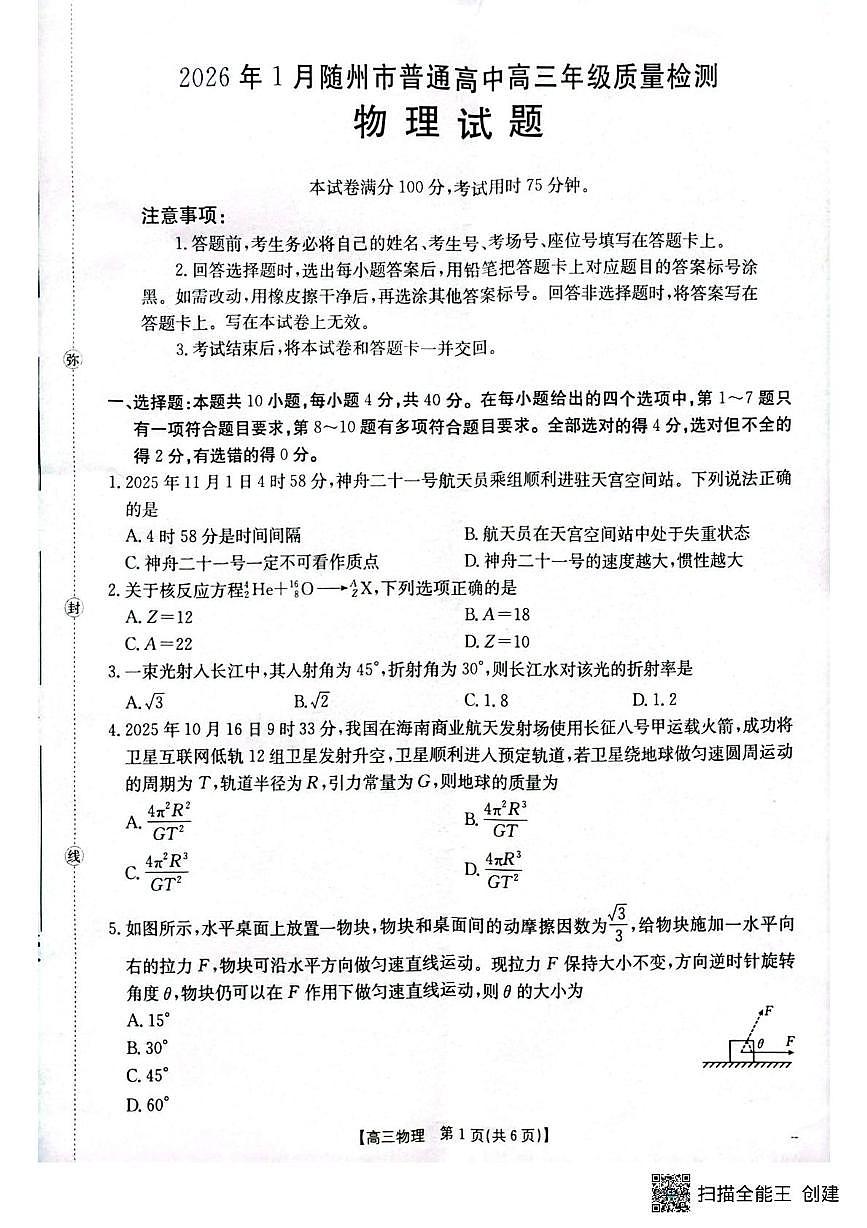 2026 年 1 月随州市普通高中高三年级质量检测
物 理 试 题
本试卷满分 100 分,考试用时 75 分钟。
注意事项:
1. 答题前,考生务必将自己的姓名、考生号、考场号、座位号填写在答题卡上。
2. 回答选择题时,选出每小题答案后,用铅笔把答题卡上对应题目的答案标号涂
黑。如需改动,用橡皮擦干净后,再选涂其他答案标号。回答非选择题时,将答案写在
答题卡上。写在本试卷上无效。
3. 考试结束后,将本试卷和答题卡一并交回。
一、选择题:本题共 10 小题,每小题 4 分,共 40 分。在每小题给出的四个选项中,第 1～7 题只
有一项符合题目要求,第 8～10 题有多项符合题目要求。全部选对的得 4 分,选对但不全的
得 2 分,有选错的得 0 分。
1. 2025 年 11 月 1 日 4 时 58 分,神舟二十一号航天员乘组顺利进驻天宫空间站。下列说法正确
的是
A. 4 时 58 分是时间间隔 B. 航天员在天宫空间站中处于失重状态
C. 神舟二十一号一定不可看作质点 D. 神舟二十一号的速度越大,惯性越大
2. 关于核反应方程⁴₂He+¹⁶₈O⟶ᴬ_ZX,下列选项正确的是
A. Z=12 B. A=18
C. A=22 D. Z=10
3. 一束光射入长江中,其入射角为 45°,折射角为 30°,则长江水对该光的折射率是
A. √3 B. √2 C. 1.8 D. 1.2
4. 2025 年 10 月 16 日 9 时 33 分,我国在海南商业航天发射场使用长征八号甲运载火箭,成功将
卫星互联网低轨 12 组卫星发射升空,卫星顺利进入预定轨道,若卫星绕地球做匀速圆周运动
的周期为 T,轨道半径为 R,引力常量为 G,则地球的质量为
A. 4π²R²/GT² B. 4π²R³/GT
C. 4π²R³/GT² D. 4πR³/GT²
5. 如图所示,水平桌面上放置一物块,物块和桌面间的动摩擦因数为√3/3,给物块施加一水平向
右的拉力 F,物块可沿水平方向做匀速直线运动。现拉力 F 保持大小不变,方向逆时针旋转
角度 θ,物块仍可以在 F 作用下做匀速直线运动,则 θ 的大小为
A. 15°
B. 30°
C. 45°
D. 60°
F
θ F
【高三物理 第 1 页(共 6 页)】
弥
封
线
扫描全能王 创建